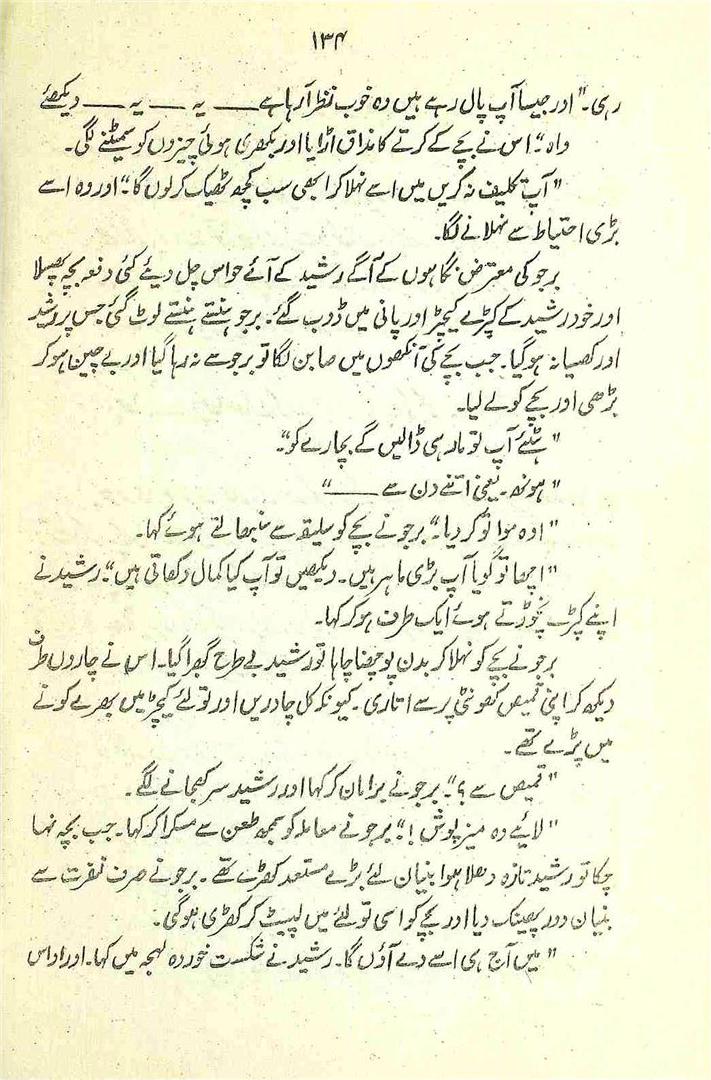 ۱۳۴
رہی۔" اور جیسا آپ پال رہے ہیں وہ خوب نظر آ رہا ہے ـــــ یہ ـــــ یہ ـــــ دیکھئے
واہ "۔ اس نے بچے کے کرتے کا مذاق اڑایا اور بکھری ہوئی چیزوں کو سمیٹنے لگی۔
"آپ تکلیف نہ کریں میں اسے نہلا کر ابھی سب کچھ ٹھیک کر لوں گا "۔ اور وہ اسے
بڑی احتیاط سے نہلانے لگا۔
برجو کی معترض نگاہوں کے آگے رشید کے آئے حواس چل دیئے کئی دفعہ بچہ پھسلا
اور خود رشید کے کپڑے کیچڑ اور پانی میں ڈوب گئے۔ برجو ہنستے ہنستے لوٹ گئی جس پر رشید
اور کھسیانہ ہو گیا۔ جب بچے کی آنکھوں میں صابن لگا تو برجو سے نہ رہا گیا اور بے چین ہو کر
بڑھی اور بچے کو لے لیا۔
"ہٹئے آپ تو مار ہی ڈالیں گے بچارے کو "۔
"ہونہہ۔ یعنی اتنے دن سے ـــــ"
"ادھ موا تو کر دیا "۔ برجو نے بچے کو سلیقے سے سنبھالتے ہوئے کہا۔
"اچھا تو گویا آپ بڑی ماہر ہیں۔ دیکھیں تو آپ کیا کمال دکھاتی ہیں "۔ رشید نے
اپنے کپڑے نچوڑتے ہوئے ایک طرف ہو کر کہا۔
برجو نے بچے کو نہلا کر بدن پوچھنا چاہا تو رشید بے طرح گھبرا گیا۔ اس نے چاروں طرف
دیکھ کر اپنی قمیص کھونٹی پر سے اتاری۔ کیونکہ کل چادریں اور تولئے کیچڑ میں بھرے کونے
میں پڑے تھے۔
"قمیص سے ؟ "۔ برجو نے برا مان کر کہا اور رشید سر کھجانے لگے۔
"لائیے وہ میز پوش ! "۔ برجو نے معاملہ کو سمجھ طعن سے مسکرا کر کہا۔ جب بچہ نہا
چکا تو رشید تازہ دھلا ہوا بنیان لئے بڑے مستعد کھڑے تھے۔ برجو نے صرف نفرت سے
بنیان دور پھینک دیا اور بچے کو اسی تولئے میں لپیٹ کر کھڑی ہو گی۔
"میں آج ہی اسے دے آؤں گا۔ رشید نے شکست خوردہ لہجہ میں کہا۔ اور اداس